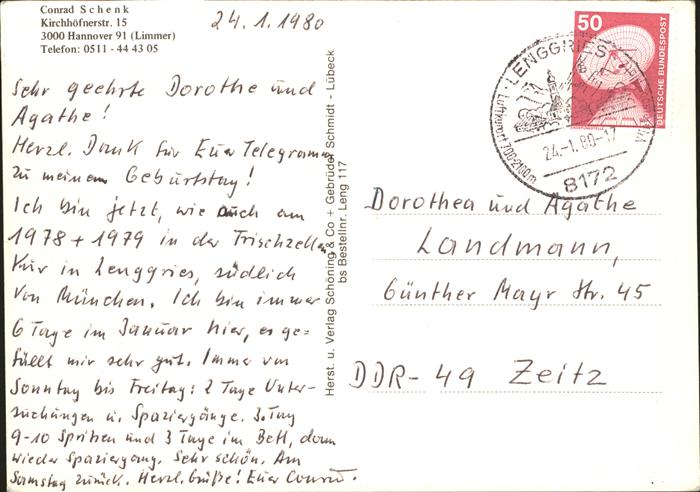 Conrad Schenk
Kirchhöfnerstr. 15
3000 Hannover 91 (Limmer)
Telefon: 0511 - 44 43 05
24.1.1980
Sehr geehrte Dorothe und
Agathe!
Herzl. Dank für Euer Telegramm
zu meinem Geburtstag!
Ich bin jetzt, wie auch am
1978 + 1979 in der Frischzellen
Kur in Lenggries, südlich
von München. Ich bin immer
6 Tage im Januar hier, es ge=
fällt mir sehr gut. Immer von
Sonntag bis Freitag: 2 Tage Unter-
suchungen u. Spaziergänge. 3. Tag
9-10 Spritzen und 3 Tage im Bett, dann
wieder Spaziergang. Sehr schön. Am
Samstag zurück. Herzl. Grüße! Euer Conrad.
Herst. u. Verlag Schöning & Co + Gebrüder Schmidt - Lübeck
bs Bestellnr. Leng 117
50
DEUTSCHE BUNDESPOST
LENGGRIES
Luftkurort 700-2100m
24.-1.80-17
8172
Dorothea und Agathe
Landmann,
Günther Mayr Str. 45
DDR-49 Zeitz